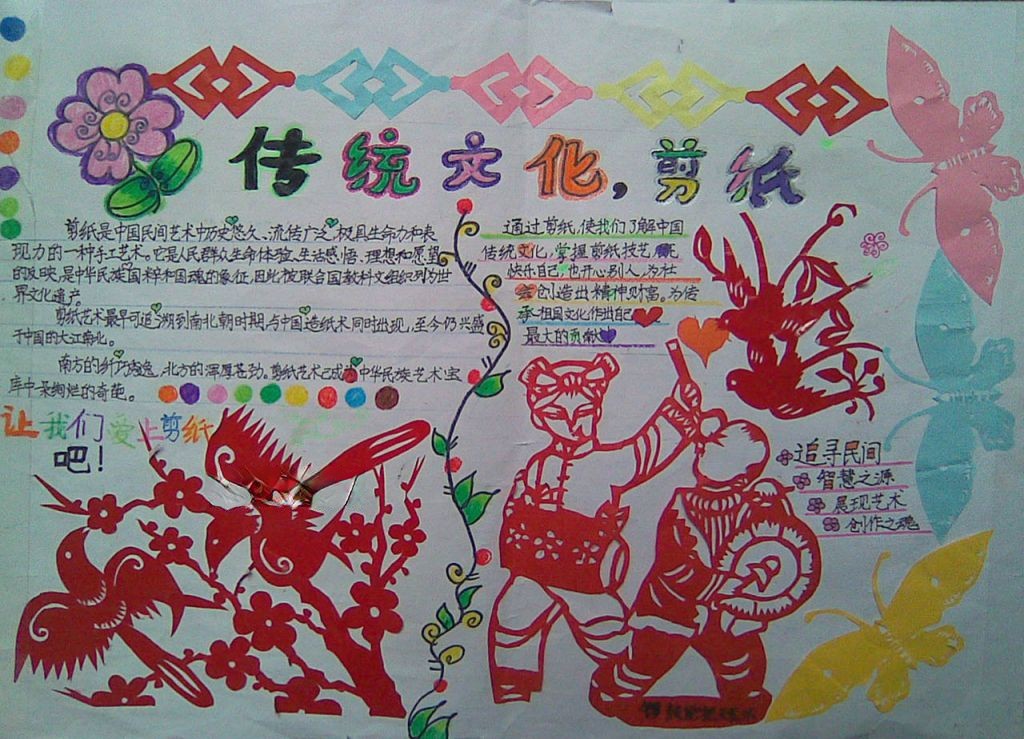 传统文化,剪纸
剪纸是中国民间艺术中历史悠久、流传广泛,极具生命力和表
现力的一种手工艺术。它是人民群众生命体验、生活感悟、理想和愿望
的反映,是中华民族国粹和国魂的象征,因此被联合国教科文组织列为世
界文化遗产。
剪纸艺术最早可追溯到南北朝时期,与中国造纸术同时出现,至今仍兴盛
于中国的大江南北。
南方的纤巧飘逸,北方的浑厚苍劲。剪纸艺术已成为中华民族艺术宝
库中朵绚烂的奇葩。
让我们爱上剪纸
吧!
通过剪纸,使我们了解中国
传统文化,掌握剪纸技艺
快乐自己,也开心别人,为社
会创造出精神财富。为传
承祖国文化作出自己
最大的贡献
追寻民间
智慧之源
展现艺术
创作之魂